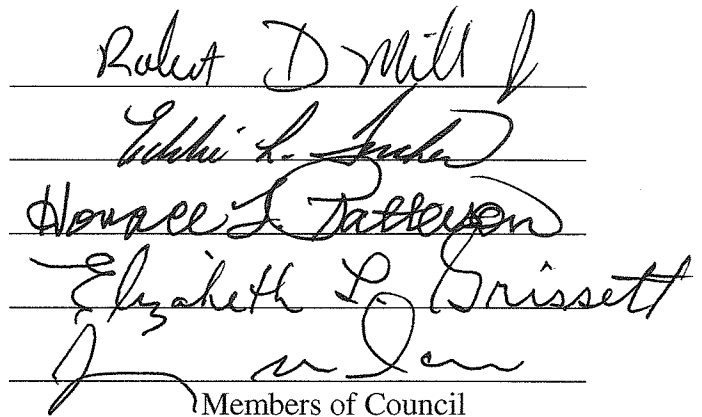 Robert D Mill Jr
Eddie L. Tucker
Horace L. Patterson
Elizabeth L. Grissett
Members of Council